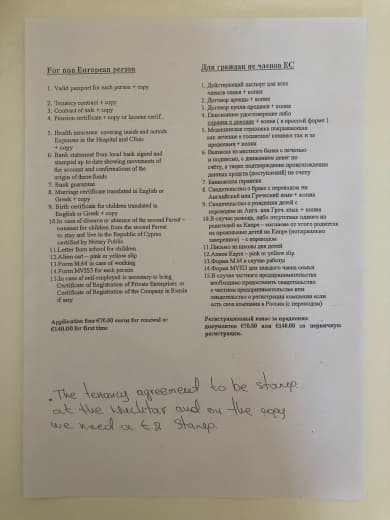 For non European person
1. Valid passport for each person + copy
2. Tenancy contract + copy
3. Contract of sale + copy
4. Pension certificate + copy or Income certif.
5. Health insurance covering inside and outside
Expenses in the Hospital and Clinic
+ copy
6. Bank statement from local bank signed and
stamped up to date showing movements of
the account and confirmations of the
origin of these funds
7. Bank guarantee
8. Marriage certificate translated in English or
Greek + copy
9. Birth certificate for children translated in
English or Greek + copy
10.In case of divorce or absence of the second Parent –
consent for children from the second Parent
to stay and live in the Republic of Cyprus
certified by Notary Public
11.Letter from school for children
12.Alien cart – pink or yellow slip
13.Form M.64 in case of working
14.Form MVIS3 for each person
15.In case of self-employed is necessary to bring
Certificate of Registration of Private Enterprises, or
Certificate of Registration of the Company in Russia
if any
Application fee €70.00 euros for renewal or
€140.00 for first time
Для граждан не членов ЕС
1. Действующий паспорт для всех
членов семьи + копия
2. Договор аренды + копия
3. Договор купли-продажи + копия
4. Пенсионное удостоверение либо
справка о доходе + копия ( в простой форме )
5. Медицинская страховка покрывающая
как лечение в госпитале/ клинике так и за
пределами + копия
6. Выписка из местного банка с печатью
и подписью, с движением денег по
счёту, а также подтверждения происхождения
данных средств (поступлений) на счету
7. Банковская гарантия
8. Свидетельство о браке с переводом на
Английский или Греческий язык + копия
9. Свидетельство о рождении детей с
переводом на Англ. или Греч. язык + копия
10.В случае развода, либо отсутствия одного из
родителей на Кипре – согласие от этого родителя
на проживание детей на Кипре (нотариально
заверенного) – с переводом
11.Письмо из школы для детей
12.Алиен Карта – pink or yellow slip
13.Форма М.64 в случае работы
14.Форма MVIS3 для каждого члена семьи
15.В случае частного предпринимательства
необходимо предоставить свидетельство
о частном предпринимательстве или
свидетельство о регистрации компании если
есть своя компания в России (с переводом)
Регистрационный взнос за продление
документов €70.00 или €140.00 за первичную
регистрацию.
. The tenancy agreement to be stamp
at the Muchtar and on the copy
we need a € 2 stamp.